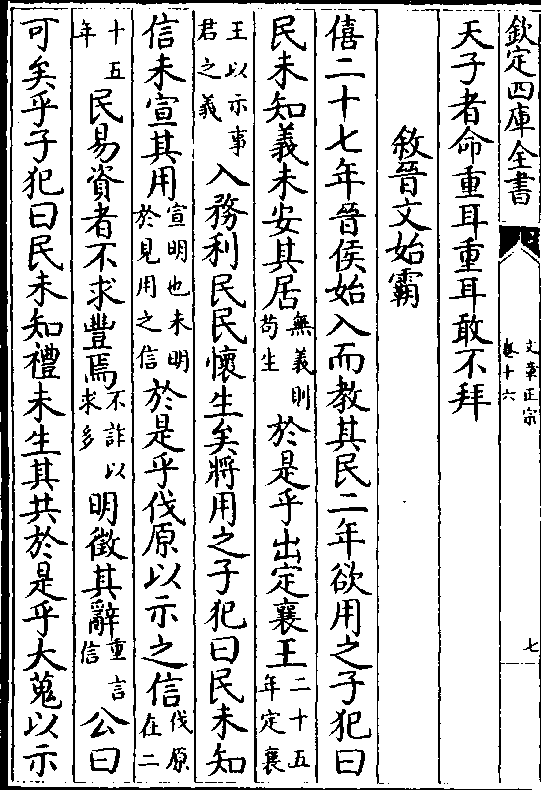 欽定四庫全書
文章正宗
卷十六
七
天子者命重耳重耳敢不拜
敘晉文始霸
僖二十七年晉侯始入而教其民二年欲用之子犯曰
民未知義未安其居無義則苟生於是乎出定襄王二十五年定襄
王以示事君之義入務利民民懷生矣將用之子犯曰民未知
信未宣其用宣明也未明於見用之信於是乎伐原以示之信伐原在二
十五年民易資者不求豐焉不詐以求多明徵其辭重言信公曰
可矣乎子犯曰民未知禮未生其共於是乎大蒐以示